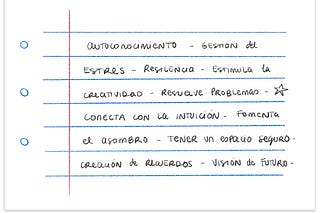 AUTOCONOCIMIENTO - GESTIÓN del
ESTRÉS - RESILENCIA - ESTIMULA la
CREATIVIDAD - RESUELVE PROBLEMAS - ☆
CONECTA CON LA INTUICIÓN - FOMENTA
el ASOMBRO - TENER UN ESPACIO SEGURO -
CREACIÓN de RECUERDOS - VISIÓN de FUTURO -